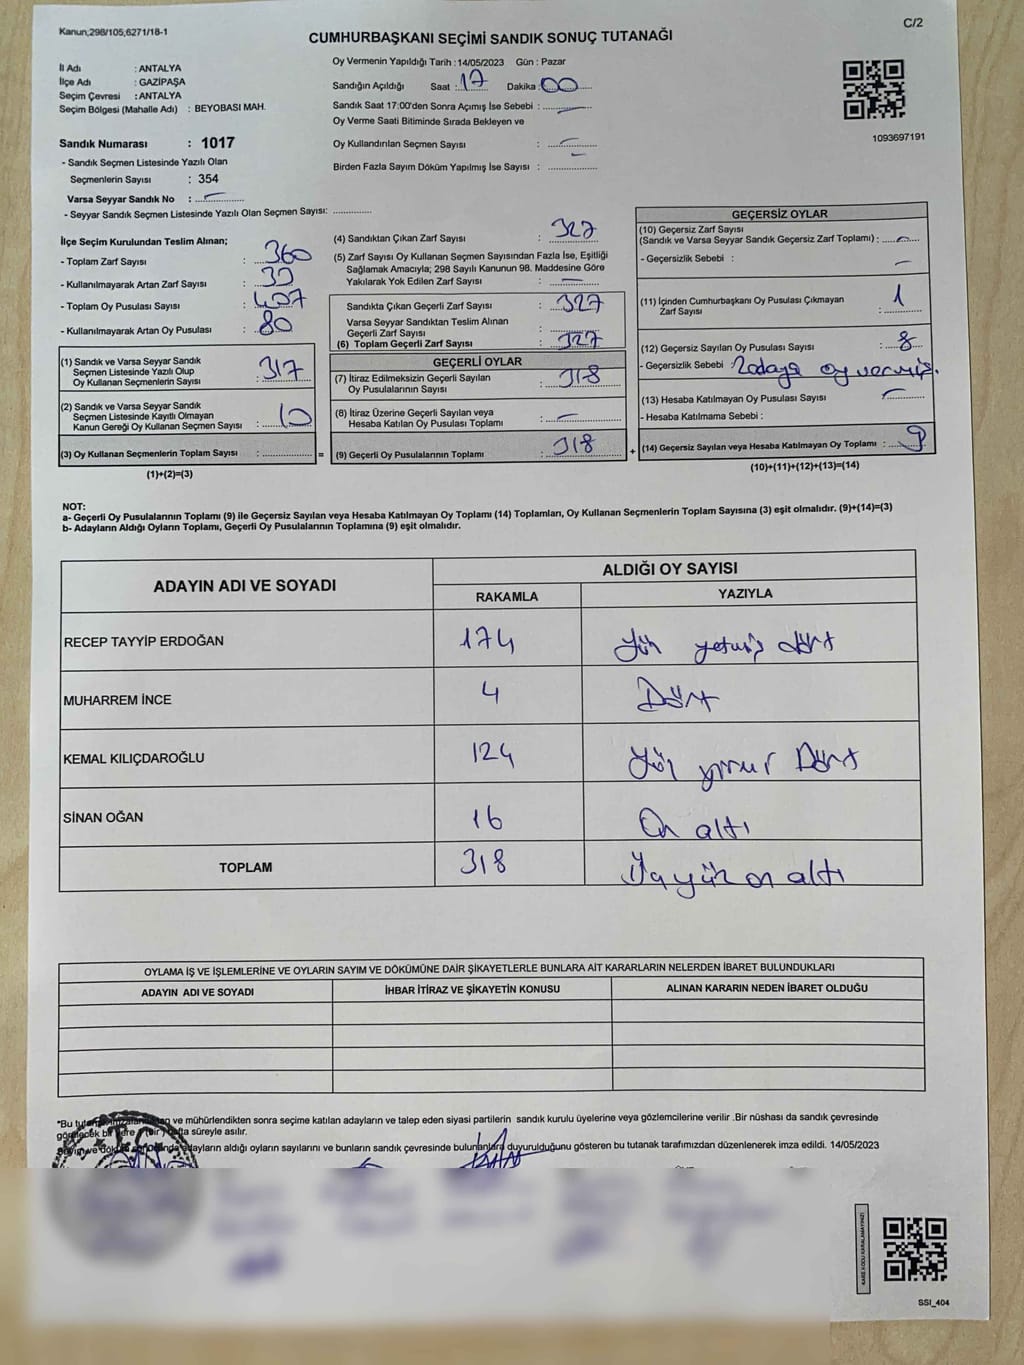 Kanun,298/105,6271/18-1
C/2
CUMHURBAŞKANI SEÇİMİ SANDIK SONUÇ TUTANAĞI
İl Adı : ANTALYA
İlçe Adı : GAZİPAŞA
Seçim Çevresi : ANTALYA
Seçim Bölgesi (Mahalle Adı) : BEYOBASI MAH.
Sandık Numarası : 1017
- Sandık Seçmen Listesinde Yazılı Olan
Seçmenlerin Sayısı : 354
Varsa Seyyar Sandık No : -
- Seyyar Sandık Seçmen Listesinde Yazılı Olan Seçmen Sayısı: ..............
Oy Vermenin Yapıldığı Tarih : 14/05/2023 Gün : Pazar
Sandığın Açıldığı Saat : 17 Dakika : 00
Sandık Saat 17:00'den Sonra Açımış İse Sebebi : -
Oy Verme Saati Bitiminde Sırada Bekleyen ve
Oy Kullandırılan Seçmen Sayısı : -
Birden Fazla Sayım Döküm Yapılmış İse Sayısı : -
1093697191
İlçe Seçim Kurulundan Teslim Alınan;
- Toplam Zarf Sayısı : 360
- Kullanılmayarak Artan Zarf Sayısı : 33
- Toplam Oy Pusulası Sayısı : 407
- Kullanılmayarak Artan Oy Pusulası : 80
(1) Sandık ve Varsa Seyyar Sandık
Seçmen Listesinde Yazılı Olup
Oy Kullanan Seçmenlerin Sayısı : 317
(2) Sandık ve Varsa Seyyar Sandık
Seçmen Listesinde Kayıtlı Olmayan
Kanun Gereği Oy Kullanan Seçmen Sayısı : 10
(3) Oy Kullanan Seçmenlerin Toplam Sayısı : .............. =
(1)+(2)=(3)
(4) Sandıktan Çıkan Zarf Sayısı : 327
(5) Zarf Sayısı Oy Kullanan Seçmen Sayısından Fazla İse, Eşitliği
Sağlamak Amacıyla; 298 Sayılı Kanunun 98. Maddesine Göre
Yakılarak Yok Edilen Zarf Sayısı : -
Sandıkta Çıkan Geçerli Zarf Sayısı : 327
Varsa Seyyar Sandıktan Teslim Alınan
Geçerli Zarf Sayısı : ..............
(6) Toplam Geçerli Zarf Sayısı : 327
GEÇERLİ OYLAR
(7) İtiraz Edilmeksizin Geçerli Sayılan
Oy Pusulalarının Sayısı : 318
(8) İtiraz Üzerine Geçerli Sayılan veya
Hesaba Katılan Oy Pusulası Toplamı : -
(9) Geçerli Oy Pusulalarının Toplamı : 318 +
GEÇERSİZ OYLAR
(10) Geçersiz Zarf Sayısı
(Sandık ve Varsa Seyyar Sandık Geçersiz Zarf Toplamı) : -
- Geçersizlik Sebebi : -
(11) İçinden Cumhurbaşkanı Oy Pusulası Çıkmayan
Zarf Sayısı : 1
(12) Geçersiz Sayılan Oy Pusulası Sayısı : 8
- Geçersizlik Sebebi : 2 adaya oy vermiş.
(13) Hesaba Katılmayan Oy Pusulası Sayısı : -
- Hesaba Katılmama Sebebi :
(14) Geçersiz Sayılan veya Hesaba Katılmayan Oy Toplamı : 9
(10)+(11)+(12)+(13)=(14)
NOT:
a- Geçerli Oy Pusulalarının Toplamı (9) ile Geçersiz Sayılan veya Hesaba Katılmayan Oy Toplamı (14) Toplamları, Oy Kullanan Seçmenlerin Toplam Sayısına (3) eşit olmalıdır. (9)+(14)=(3)
b- Adayların Aldığı Oyların Toplamı, Geçerli Oy Pusulalarının Toplamına (9) eşit olmalıdır.
ADAYIN ADI VE SOYADI ALDIĞI OY SAYISI
RAKAMLA YAZIYLA
RECEP TAYYİP ERDOĞAN 174 Yüz yetmiş dört
MUHARREM İNCE 4 Dört
KEMAL KILIÇDAROĞLU 124 Yüz yirmi Dört
SİNAN OĞAN 16 On altı
TOPLAM 318 Üç yüz on altı
OYLAMA İŞ VE İŞLEMLERİNE VE OYLARIN SAYIM VE DÖKÜMÜNE DAİR ŞİKAYETLERLE BUNLARA AİT KARARLARIN NELERDEN İBARET BULUNDUKLARI
ADAYIN ADI VE SOYADI İHBAR İTİRAZ VE ŞİKAYETİN KONUSU ALINAN KARARIN NEDEN İBARET OLDUĞU
*Bu ve mühürlendikten sonra seçime katılan adayların ve talep eden siyasi partilerin sandık kurulu üyelerine veya gözlemcilerine verilir .Bir nüshası da sandık çevresinde
süreyle asılır.
adayların aldığı oyların sayılarını ve bunların sandık çevresinde bulunanlara duyurulduğunu gösteren bu tutanak tarafımızdan düzenlenerek imza edildi. 14/05/2023
KARE KODU KARALAMAYINIZ!
SSI_404